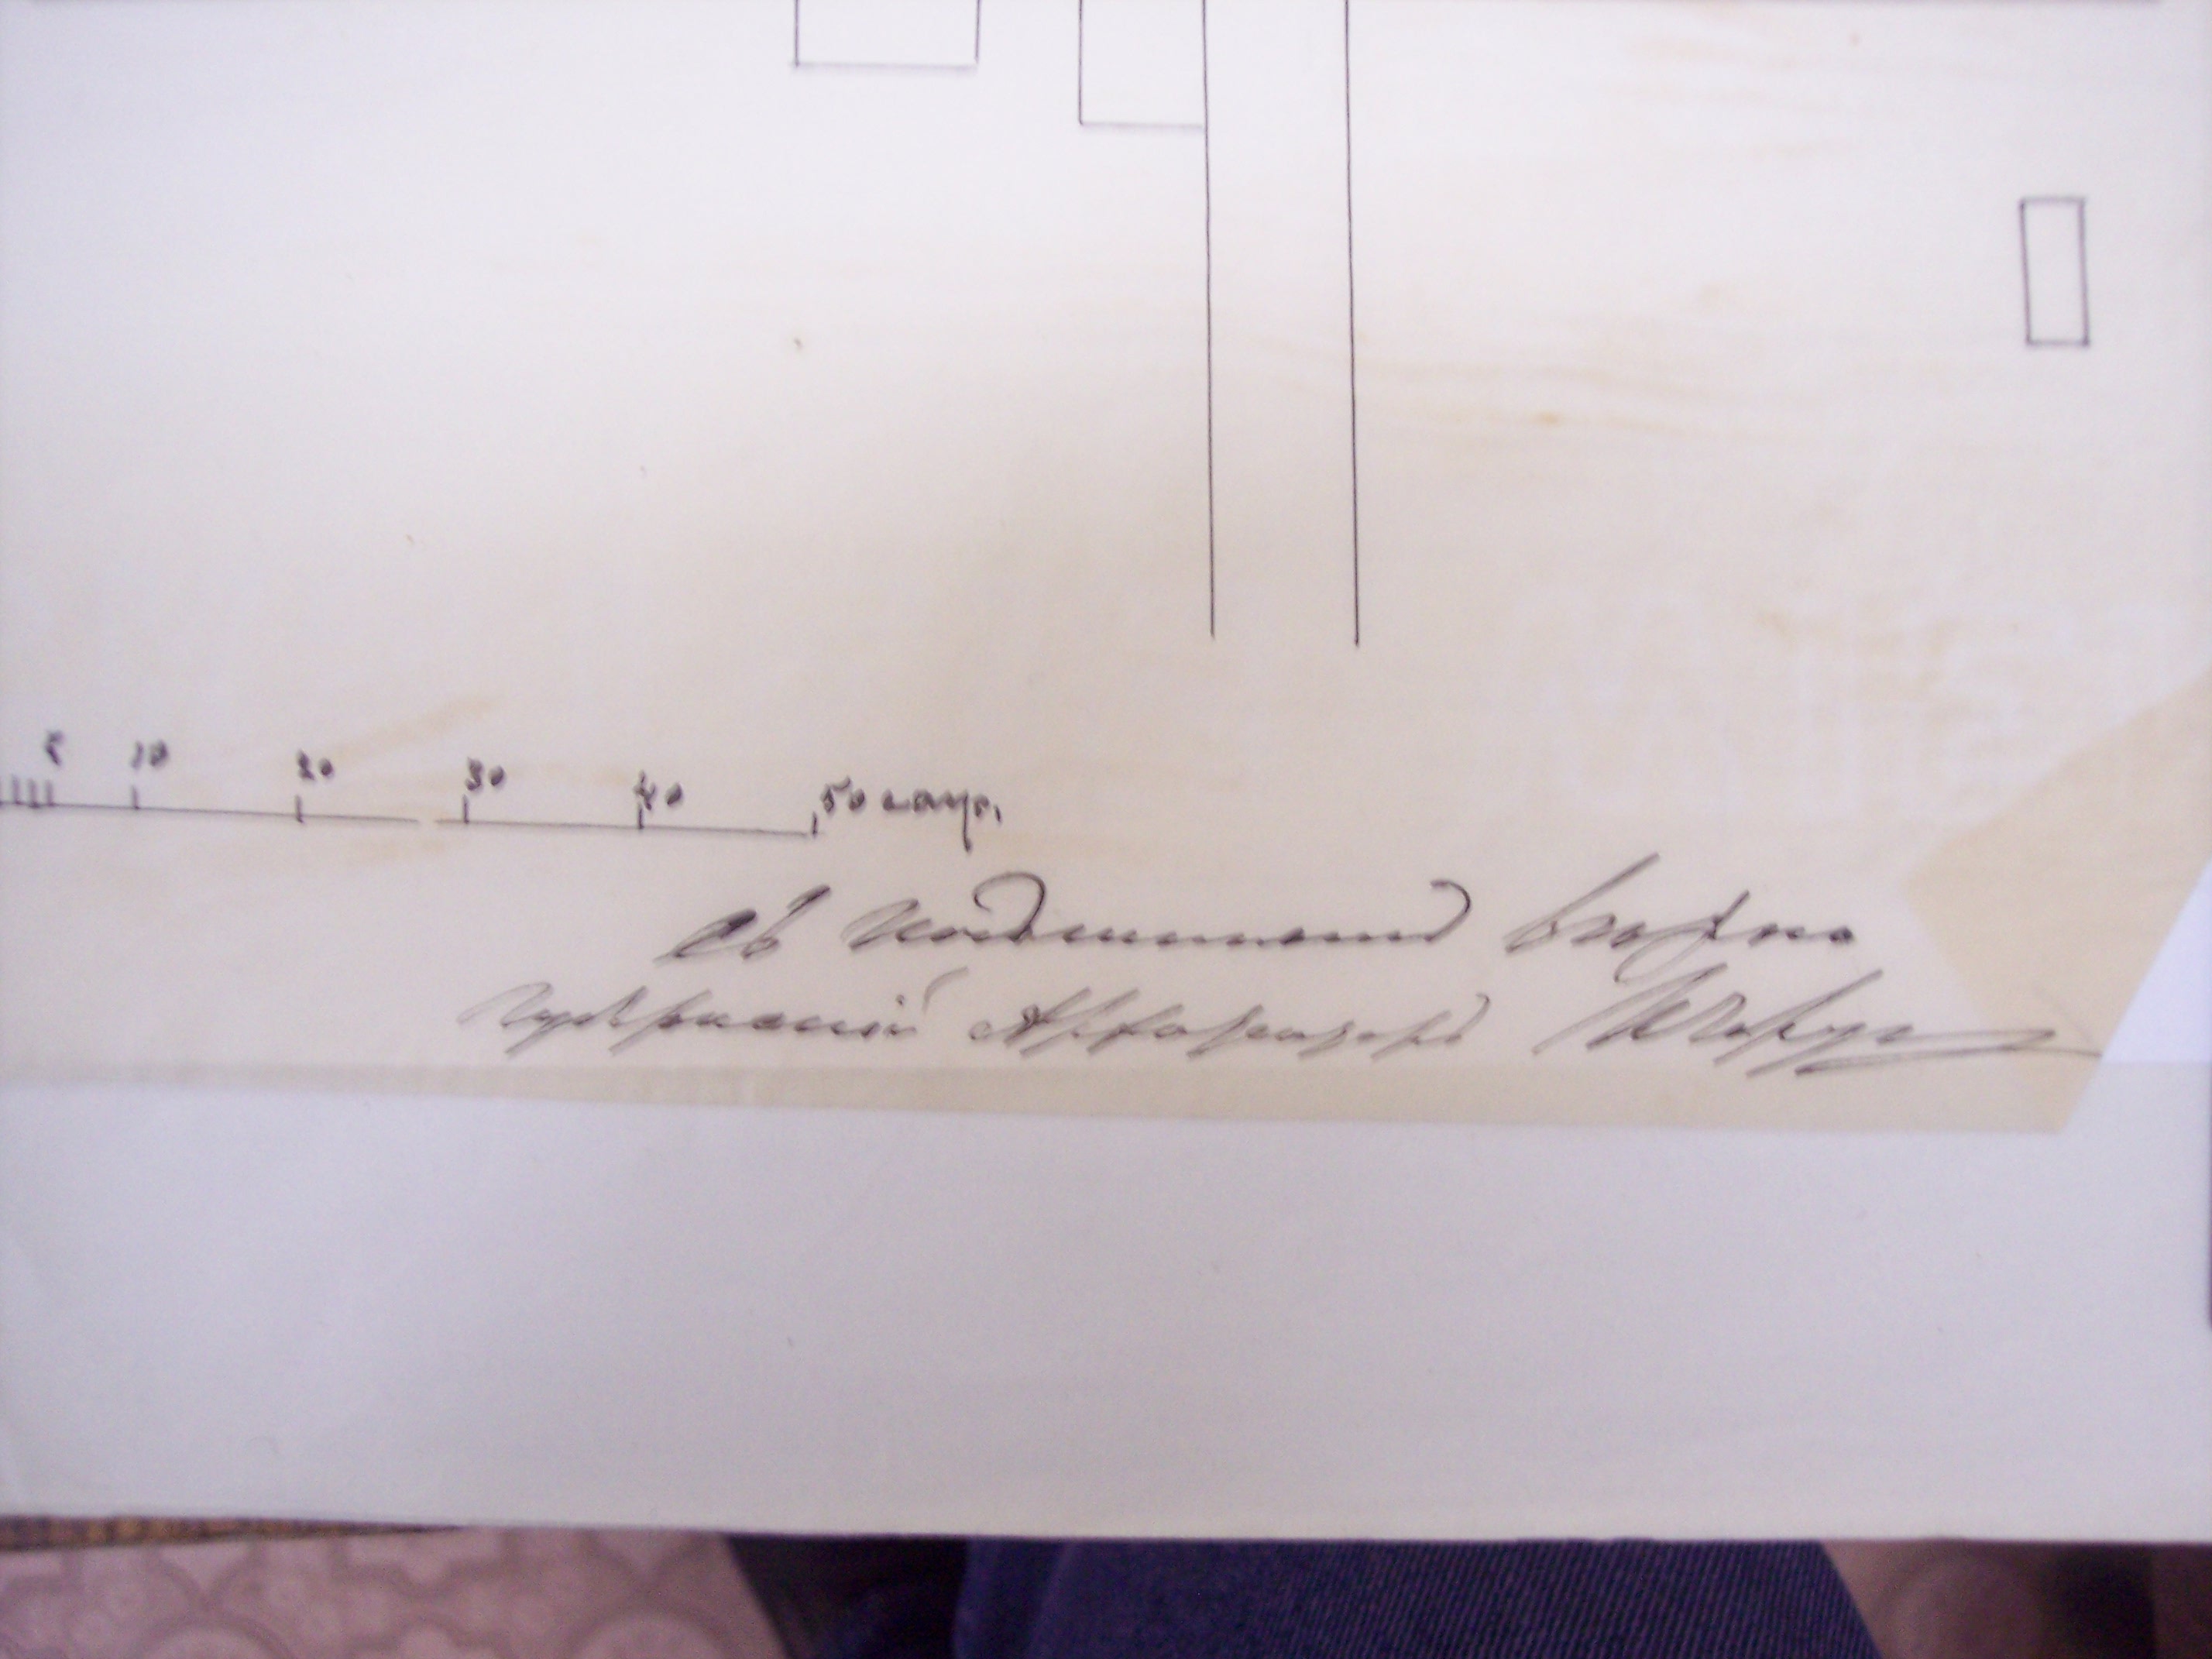 5 10 20 30 40 50 саж.
Съ подлиннымъ вѣрно
Губернскій Архитекторъ